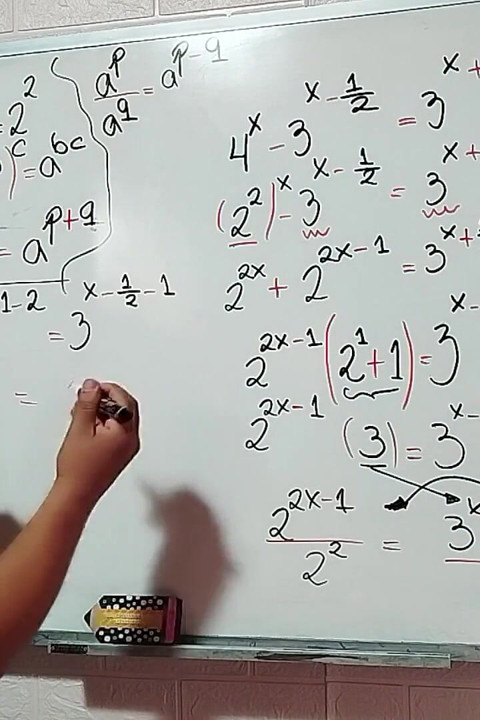 = 2²
a^p/a^q = a^(p-q)
)^c = a^(bc)
= a^(p+q)
1-2 = 3^(x - 1/2 - 1)
=
4^x - 3^(x - 1/2) = 3^(x+
(2²)^x - 3^(x - 1/2) = 3^(x+
2^(2x) + 2^(2x-1) = 3^(x+
2^(2x-1) (2¹+1) = 3^(x-
2^(2x-1) (3) = 3^(x-
2^(2x-1)/2² = 3^x